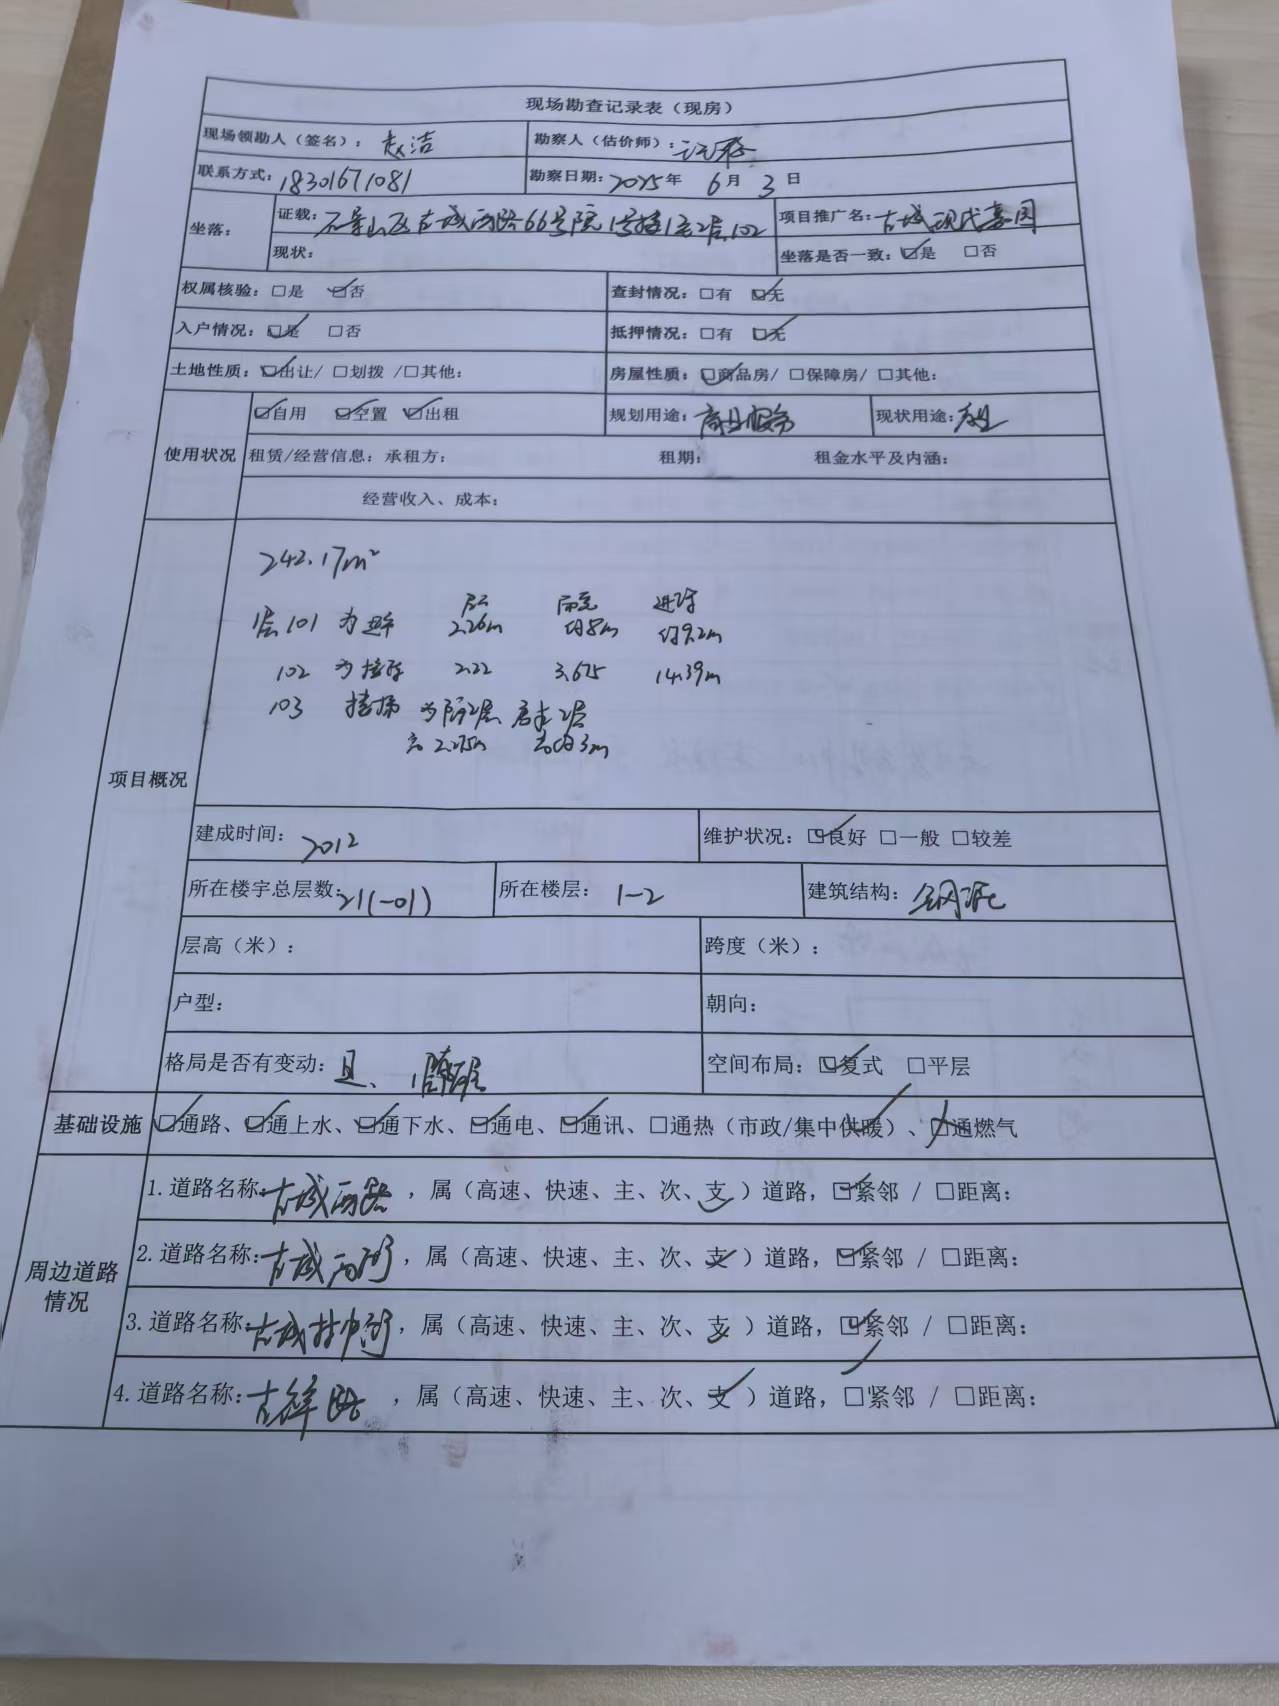 现场勘查记录表（现房）
现场领勘人（签名）：赵洁 勘察人（估价师）：
联系方式：18301671081 勘察日期：2025年 6月 3日
坐落： 证载：石景山区古城西路66号院1号楼1至2层102 项目推广名：古城现代嘉园
现状： 坐落是否一致：☑是 □否
权属核验：□是 ☑否 查封情况：□有 ☑无
入户情况：☑是 □否 抵押情况：□有 ☑无
土地性质：☑出让/ □划拨 /□其他： 房屋性质：☑商品房/ □保障房/ □其他：
使用状况 ☑自用 ☑空置 ☑出租 规划用途：商业服务 现状用途：商业
租赁/经营信息：承租方： 租期： 租金水平及内涵：
经营收入、成本：
项目概况
242.17m²
层高 面宽 进深
1层101 为 2.26m 约8m 约9.2m
102 为 2.22 3.675 14.39m
103 楼梯 为 2层 2层
高2.275m 高约3m
建成时间：2012 维护状况：☑良好 □一般 □较差
所在楼宇总层数：21(-01) 所在楼层：1-2 建筑结构：钢混
层高（米）： 跨度（米）：
户型： 朝向：
格局是否有变动：是、 隔层 空间布局：☑复式 □平层
基础设施 ☑通路、☑通上水、☑通下水、☑通电、☑通讯、□通热（市政/集中供暖）、□通燃气
周边道路情况
1.道路名称：古城西路，属（高速、快速、主、次、支）道路，☑紧邻 / □距离：
2.道路名称：古城西街，属（高速、快速、主、次、支）道路，☑紧邻 / □距离：
3.道路名称：古城村中街，属（高速、快速、主、次、支）道路，☑紧邻 / □距离：
4.道路名称：古祥路，属（高速、快速、主、次、支）道路，□紧邻 / □距离：